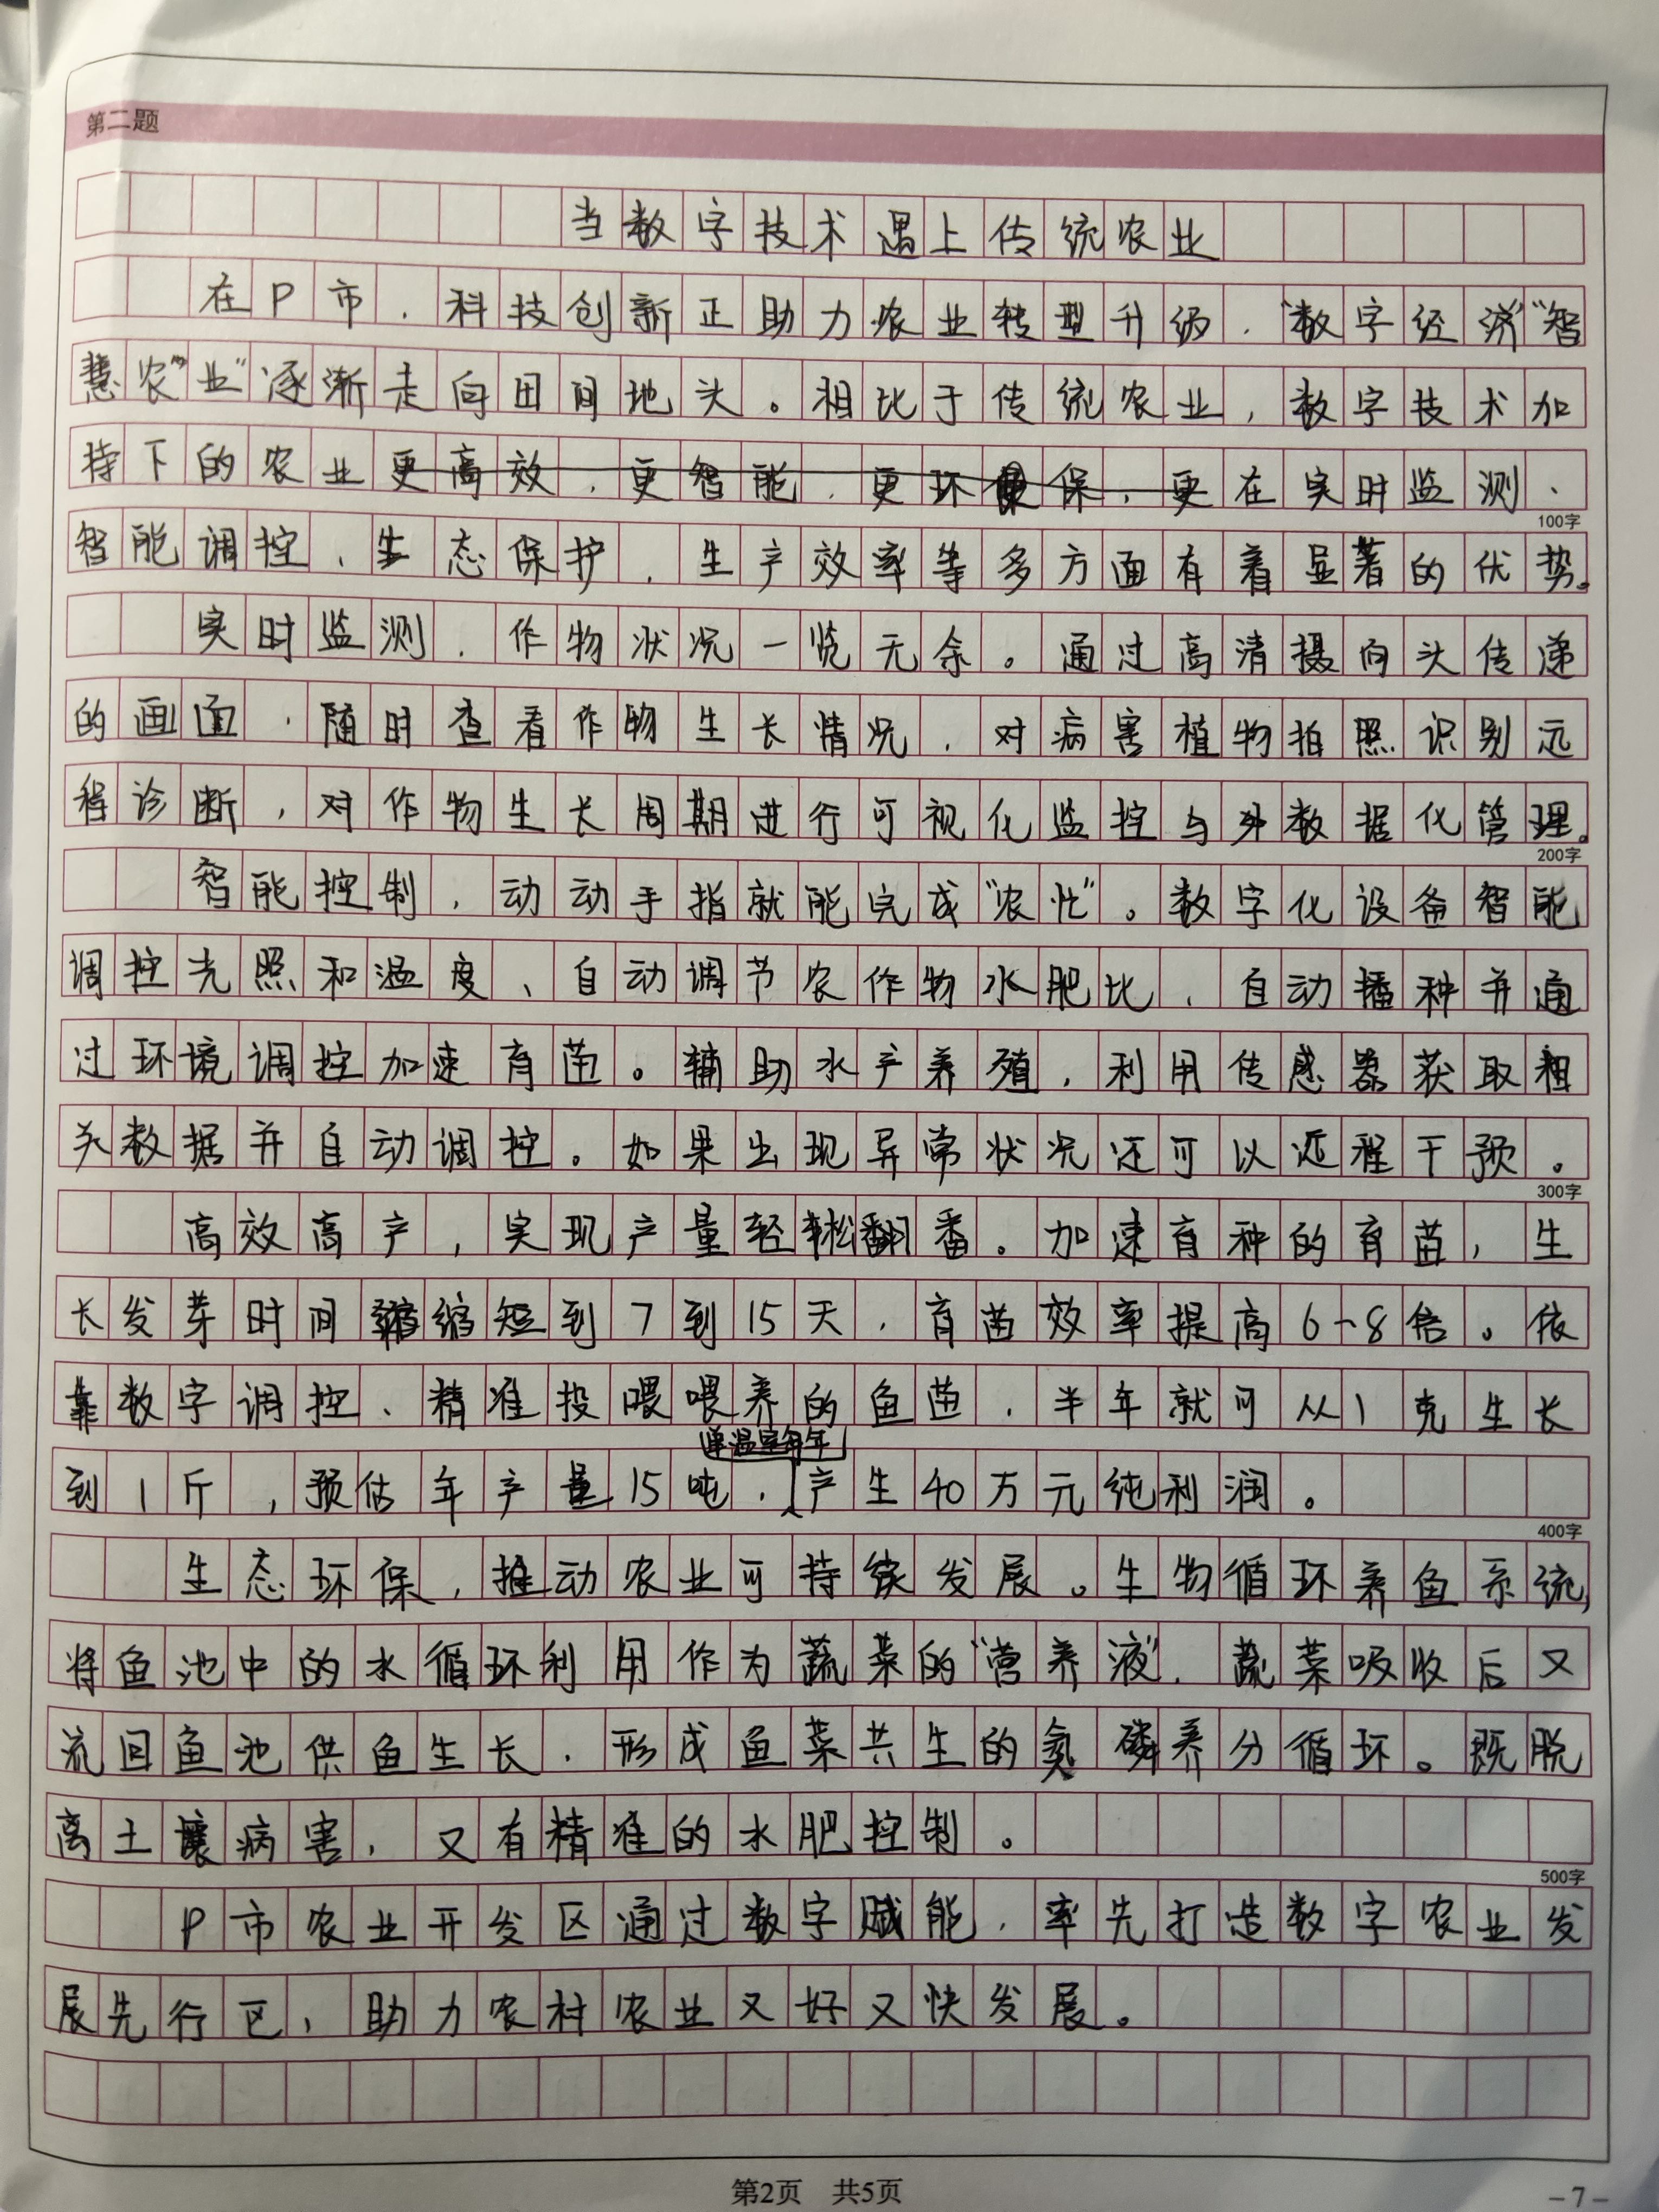 第二题
当数字技术遇上传统农业
在P市，科技创新正助力农业转型升级，“数字经济”“智
慧农业”逐渐走向田间地头。相比于传统农业，数字技术加
持下的农业更高效，更智能，更环保，更在实时监测、
100字
智能调控、生态保护，生产效率等多方面有着显著的优势。
实时监测，作物状况一览无余。通过高清摄向头传递
的画面，随时查看作物生长情况，对病害植物拍照识别远
程诊断，对作物生长周期进行可视化监控与数据化管理。
200字
智能控制，动动手指就能完成“农忙”。数字化设备智能
调控光照和温度、自动调节农作物水肥比，自动播种并通
过环境调控加速育苗。辅助水产养殖，利用传感器获取相
关数据并自动调控。如果出现异常状况还可以远程干预。
300字
高效高产，实现产量轻松翻番。加速育种的育苗，生
长发芽时间缩短到7到15天，育苗效率提高6-8倍。依
靠数字调控、精准投喂喂养的鱼苗，半年就可从1克生长
单温室每年
到1斤，预估年产量15吨，产生40万元纯利润。
400字
生态环保，推动农业可持续发展。生物循环养鱼系统，
将鱼池中的水循环利用作为蔬菜的“营养液”，蔬菜吸收后又
流回鱼池供鱼生长，形成鱼菜共生的氮磷养分循环。既脱
离土壤病害，又有精准的水肥控制。
500字
P市农业开发区通过数字赋能，率先打造数字农业发
展先行区，助力农村农业又好又快发展。
第2页 共5页
-7-